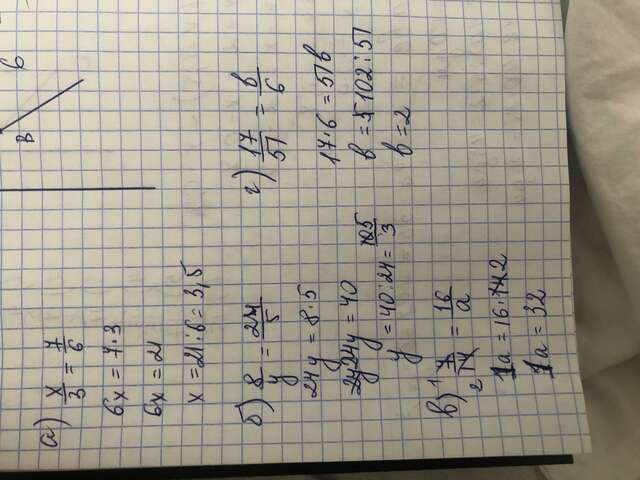 б
В
а) x/3 = 7/6
6x = 7·3
6x = 21
x = 21:6 = 3,5
б) 8/y = 24/5
24y = 8·5
24y = 40
y = 40:24 = 5/3
в) 7/14 = 16/a
1 2
1a = 16·2
1a = 32
г) 17/51 = b/6
17·6 = 51b
b = 102:51
b = 2